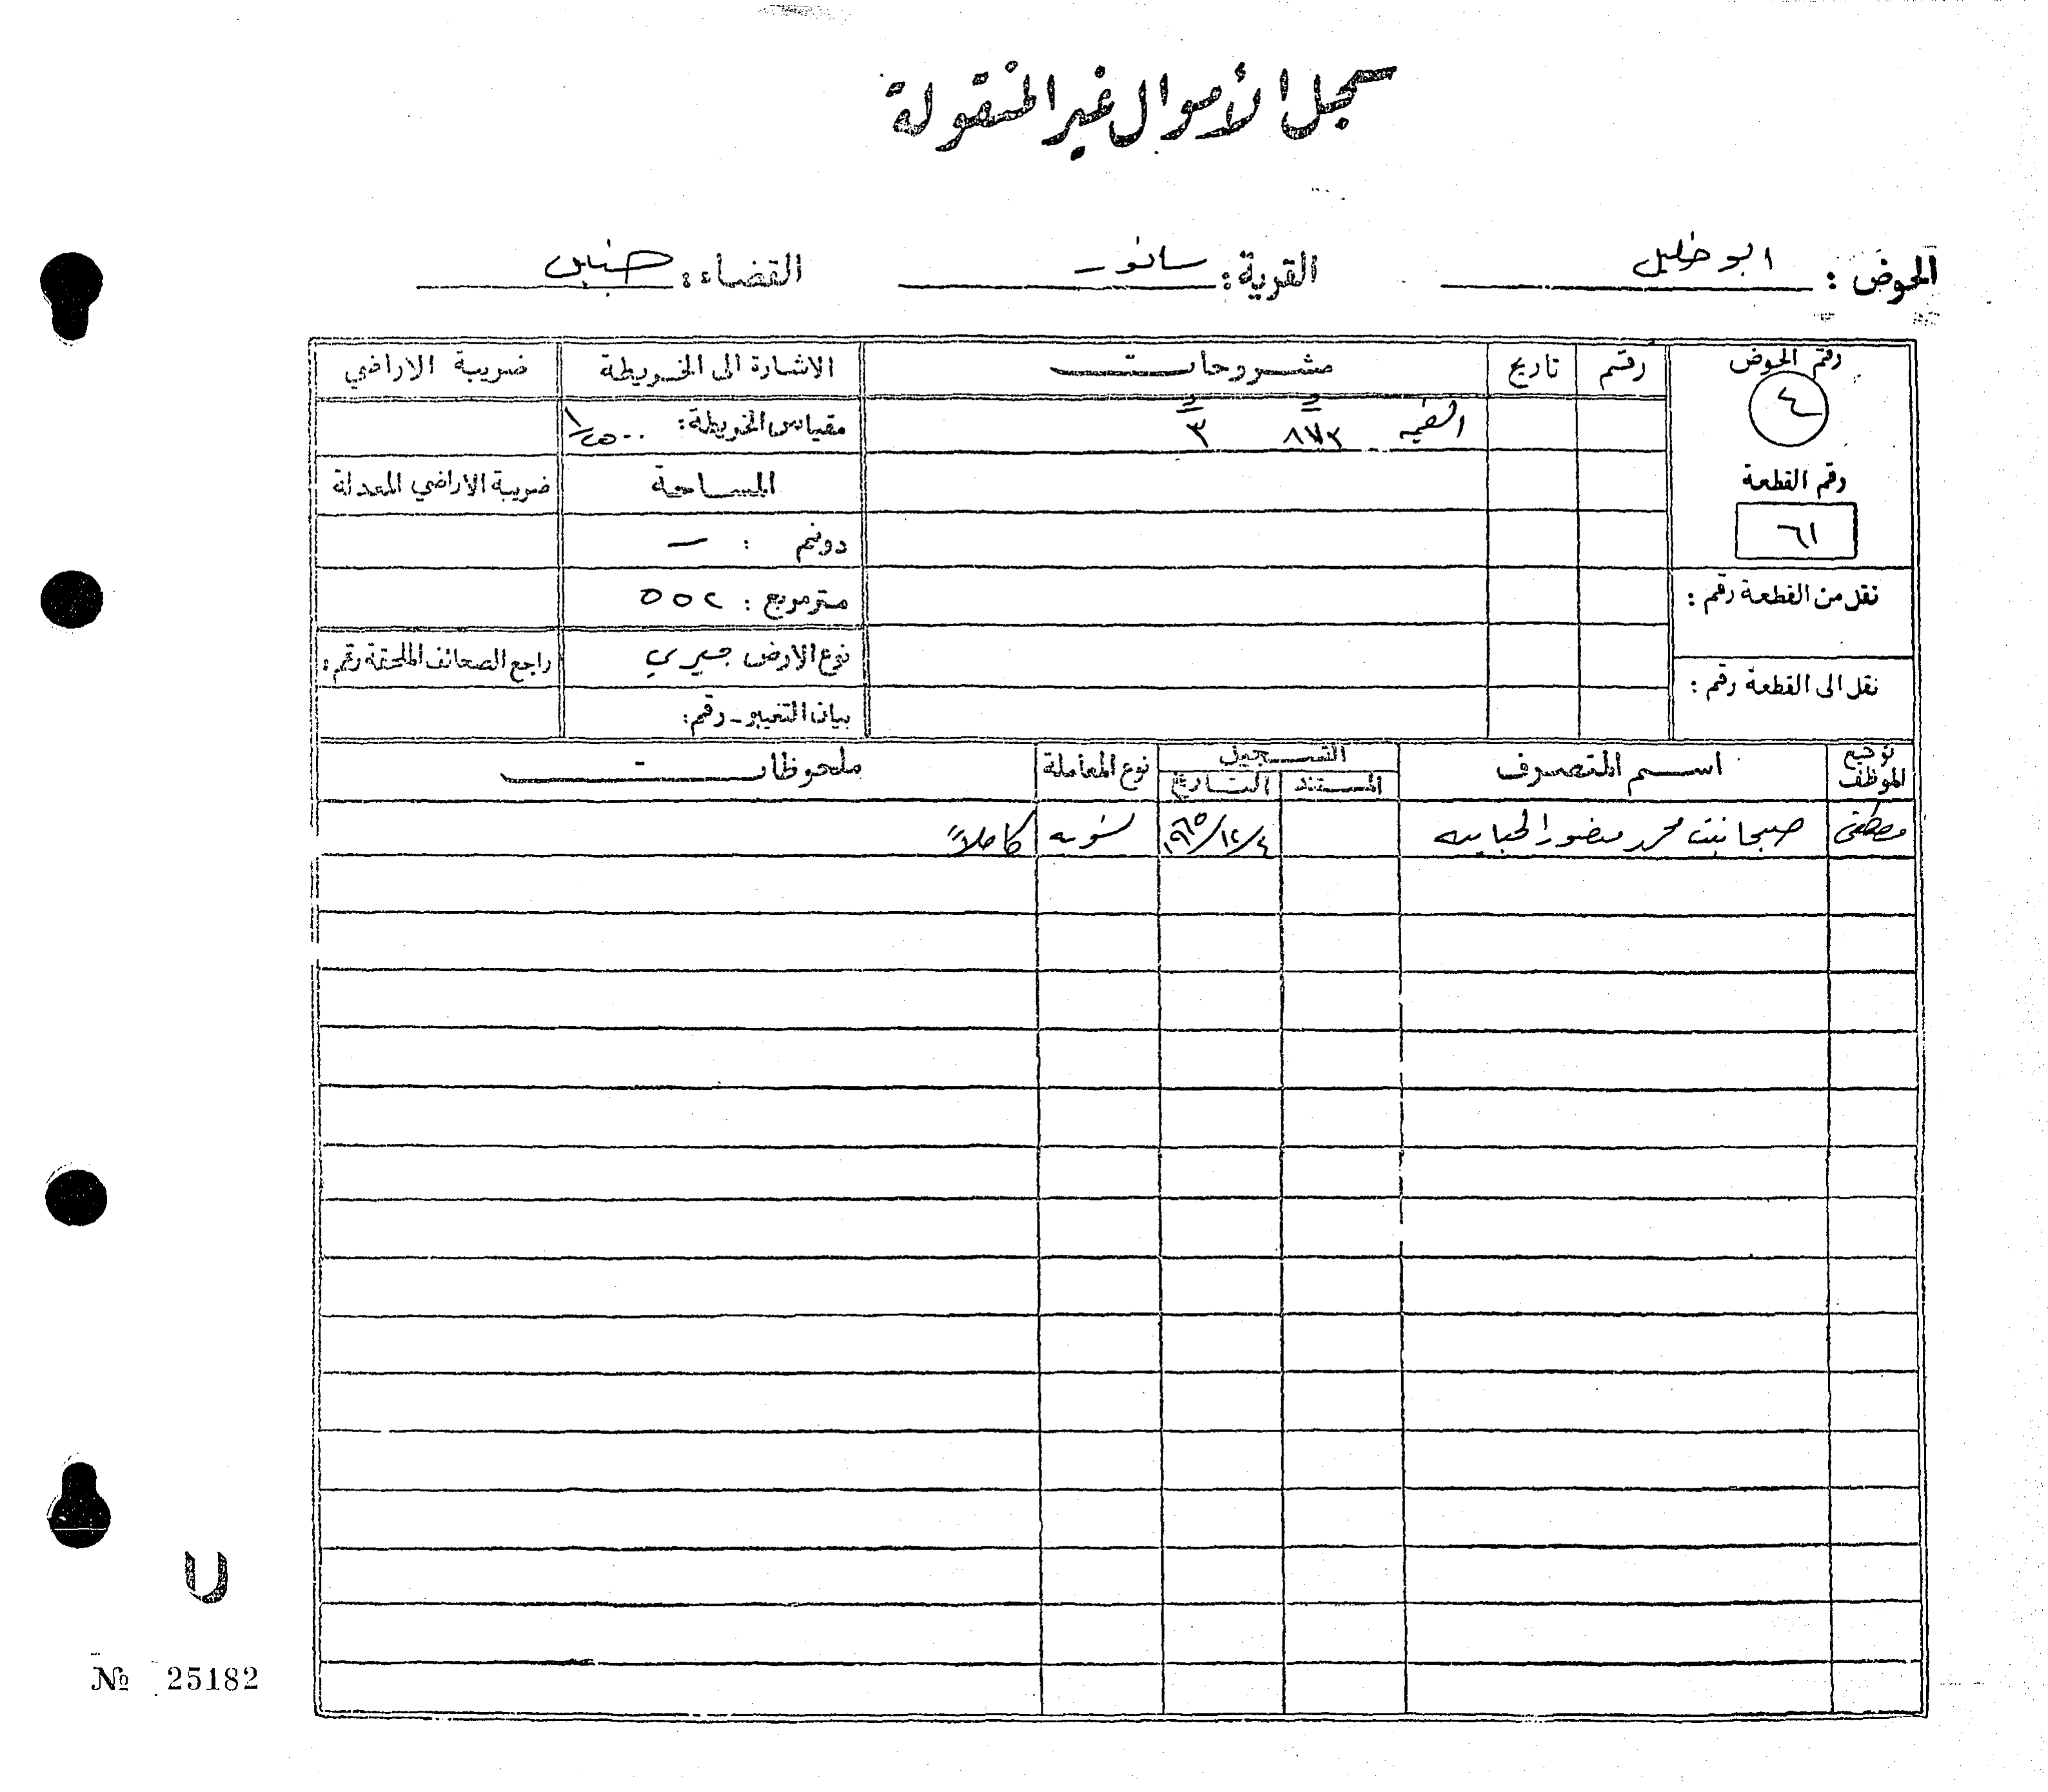 سجل الأموال غير المنقولة
الحوض : ابو خليل القرية : سانور القضاء : جنين
رقم الحوض رقم تاريخ مشروحات الاشارة الى الخريطة ضريبة الاراضي
٤ القيمه ٣ مقياس الخريطة : ١/٢٥٠٠
رقم القطعة المساحة ضريبة الاراضي المعدلة
٦١ دونم : —
نقل من القطعة رقم : متر مربع : ٥٥٢
نوع الارض ميري راجع الصحائف الملحقة رقم :
نقل الى القطعة رقم : بيان التغيير - رقم :
توقيع الموظف اسم المتصرف التسجيل نوع المعاملة ملحوظات
المستند التاريخ
مصطفى بنت محمد منصور ٤/١٢/٩٦٥ تسويه كاملاً
U
№ 25182